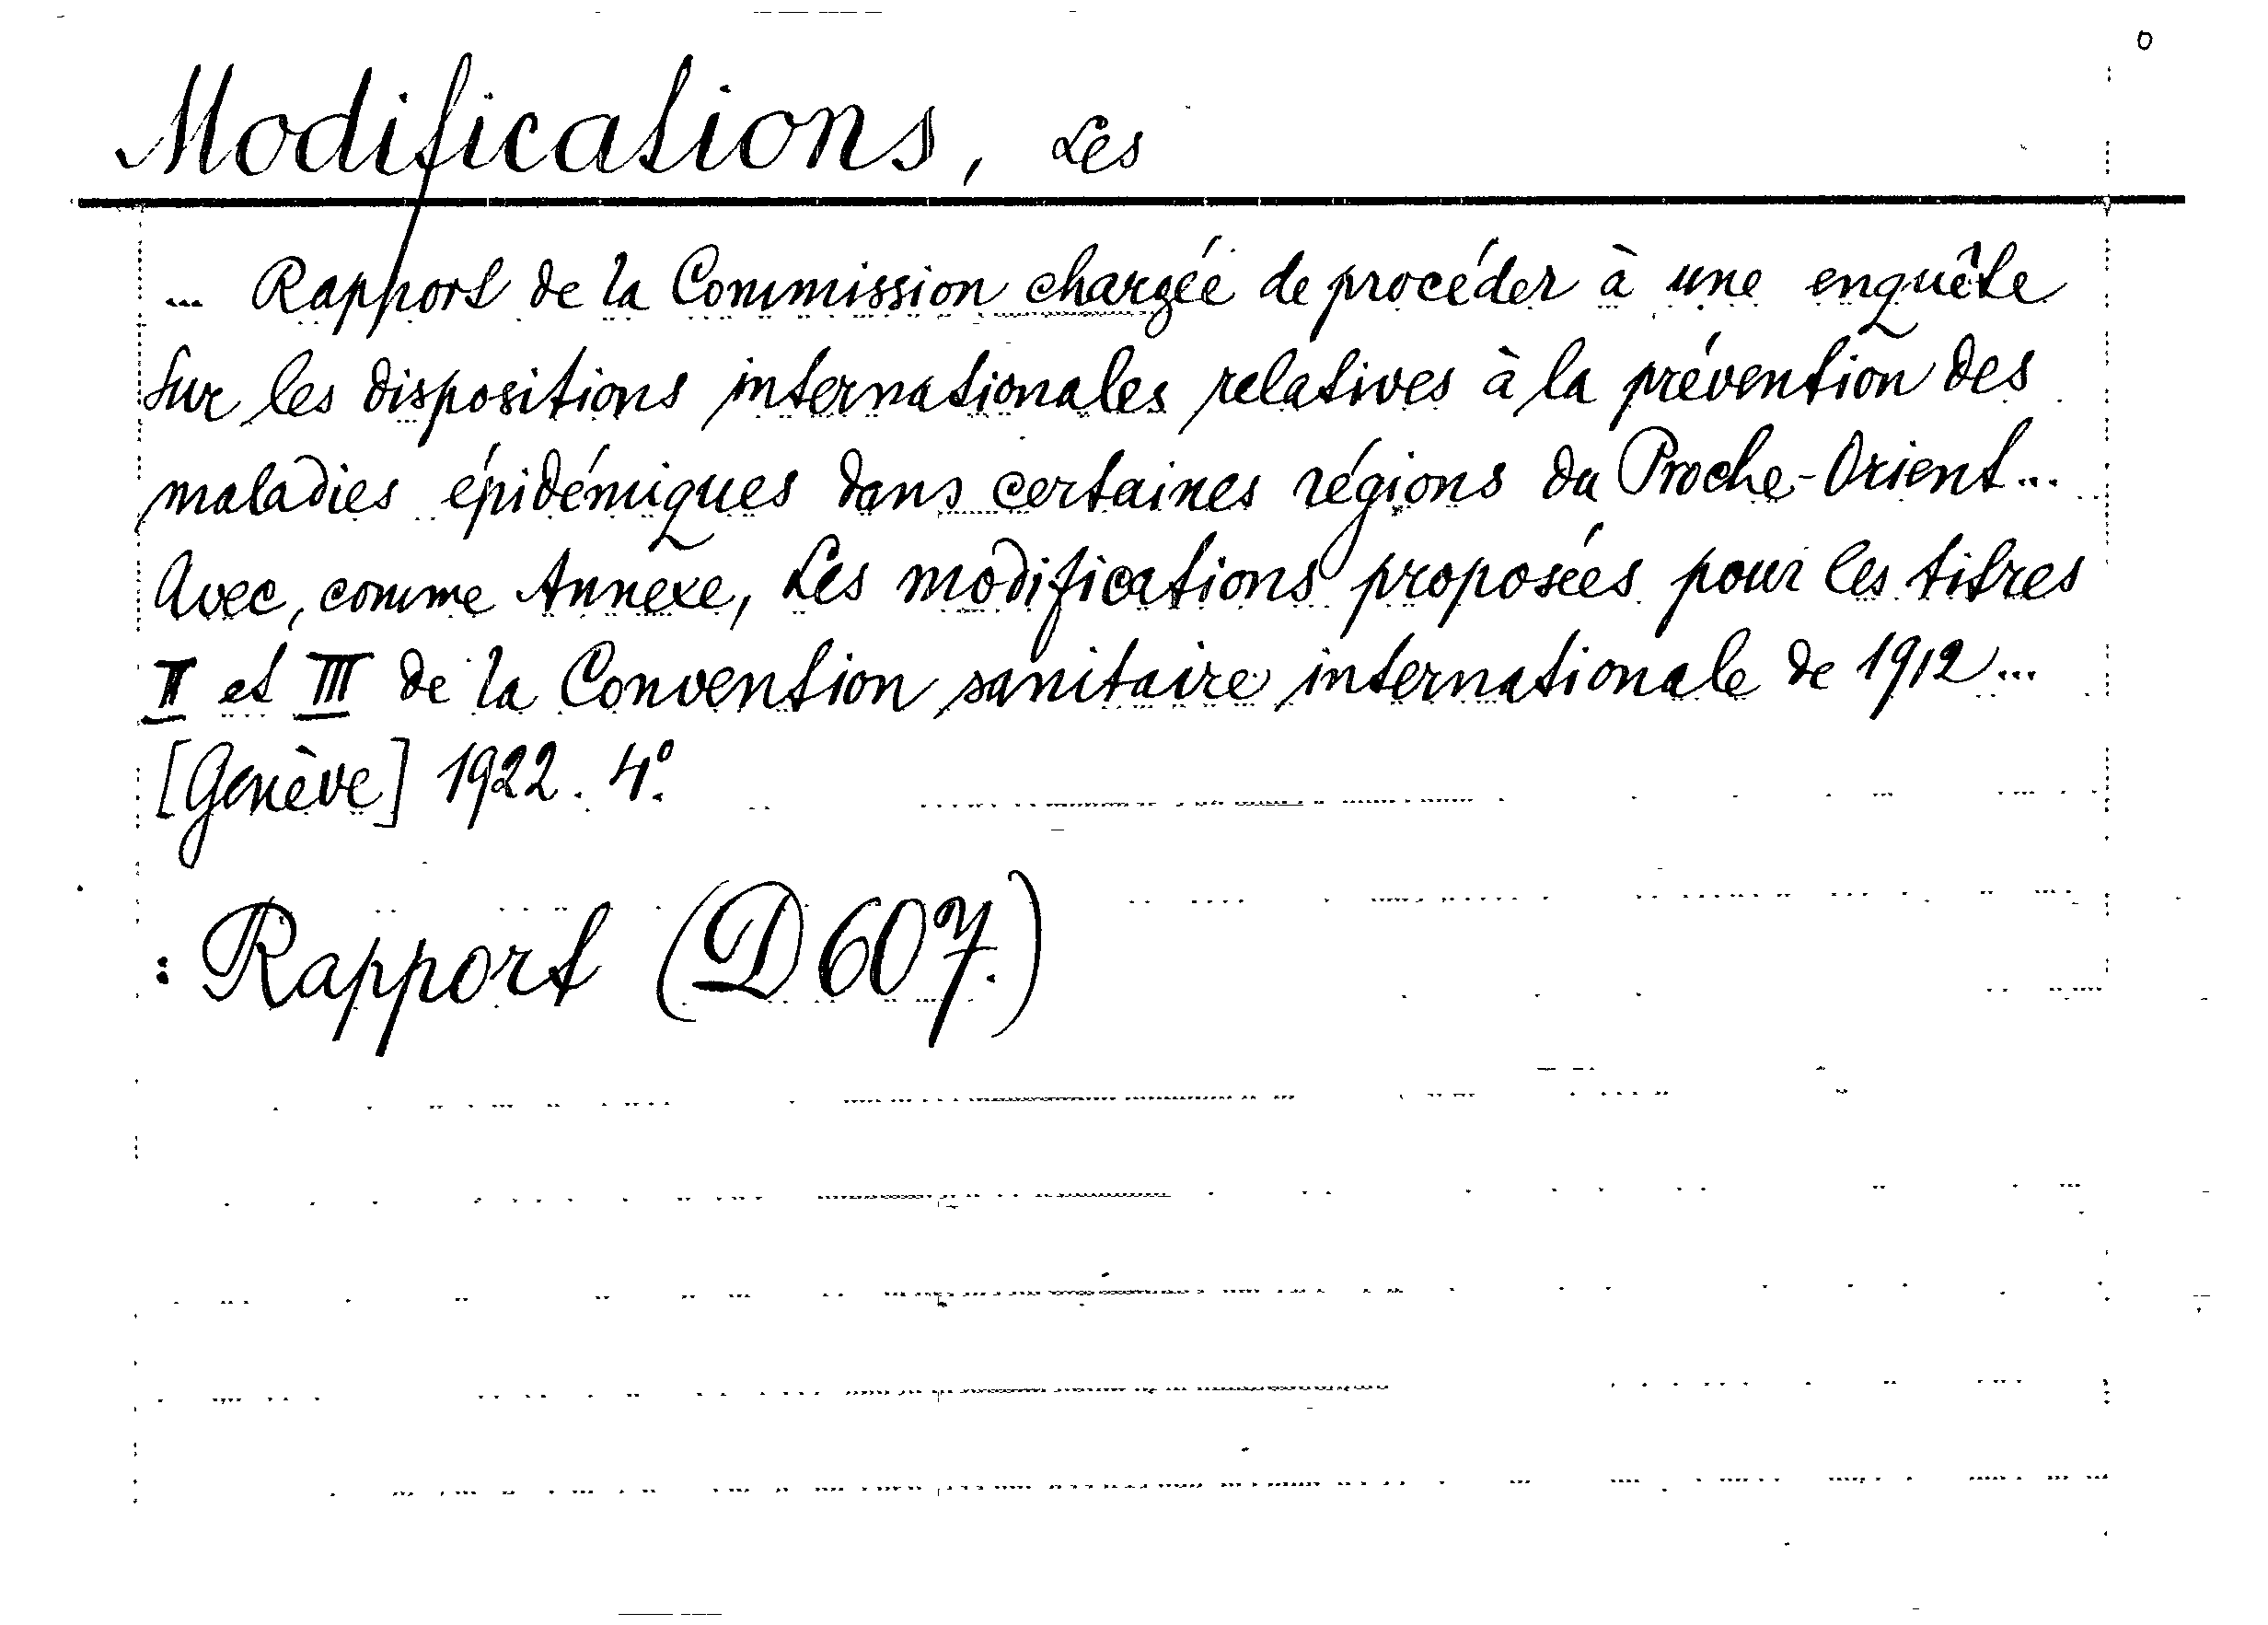 Modifications, Les
... Rapport de la Commission chargée de procéder à une enquête
sur les dispositions internationales relatives à la prévention des
maladies épidémiques dans certaines régions du Proche-Orient...
Avec, comme Annexe, Les modifications proposées pour les titres
II et III de la Convention sanitaire internationale de 1912...
[Genève] 1922. 4°.
: Rapport (D 607.)